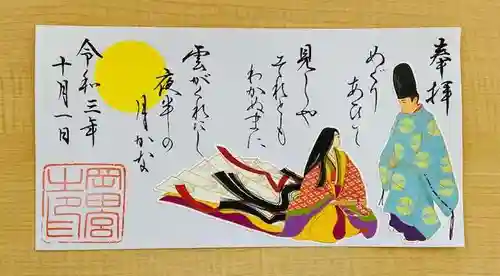 奉拝
めぐりあひて
見しや
それとも
わかぬまに
雲がくれにし
夜半の
月かな
令和三年
十月一日
岡田宮